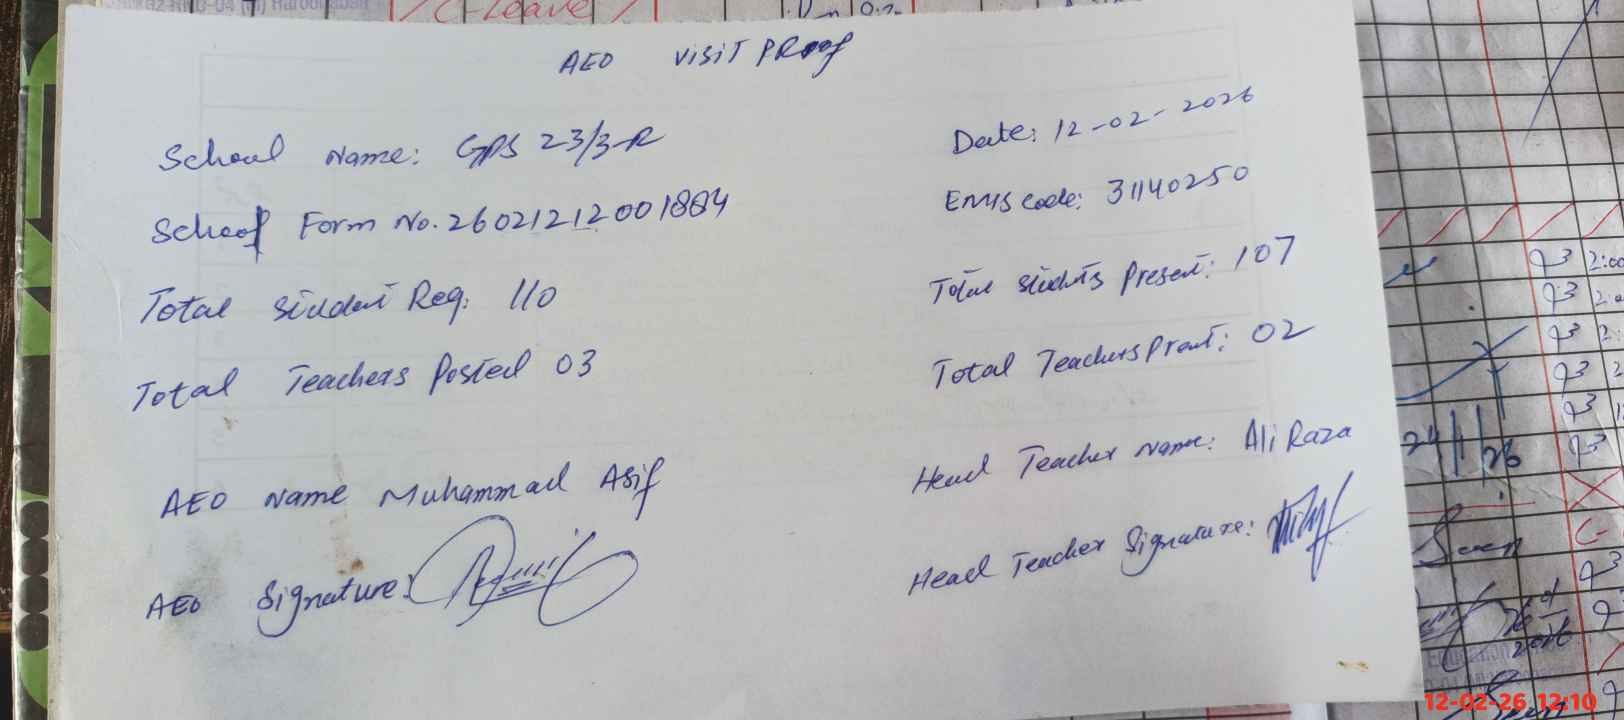 C-Leave
AEO VISIT PROof
School Name: GPS 23/3-R
Date: 12-02-2026
School Form No. 26021212001884
EMIS code: 31140250
Total Student Reg. 110
Total Students Present: 107
Total Teachers Posted 03
Total Teachers Prent: 02
AEO Name Muhammad Asif
Head Teacher Name: Ali Raza
AEO Signature:
Head Teacher Signature:
24/1/26
Seen
12-02-26 12:10